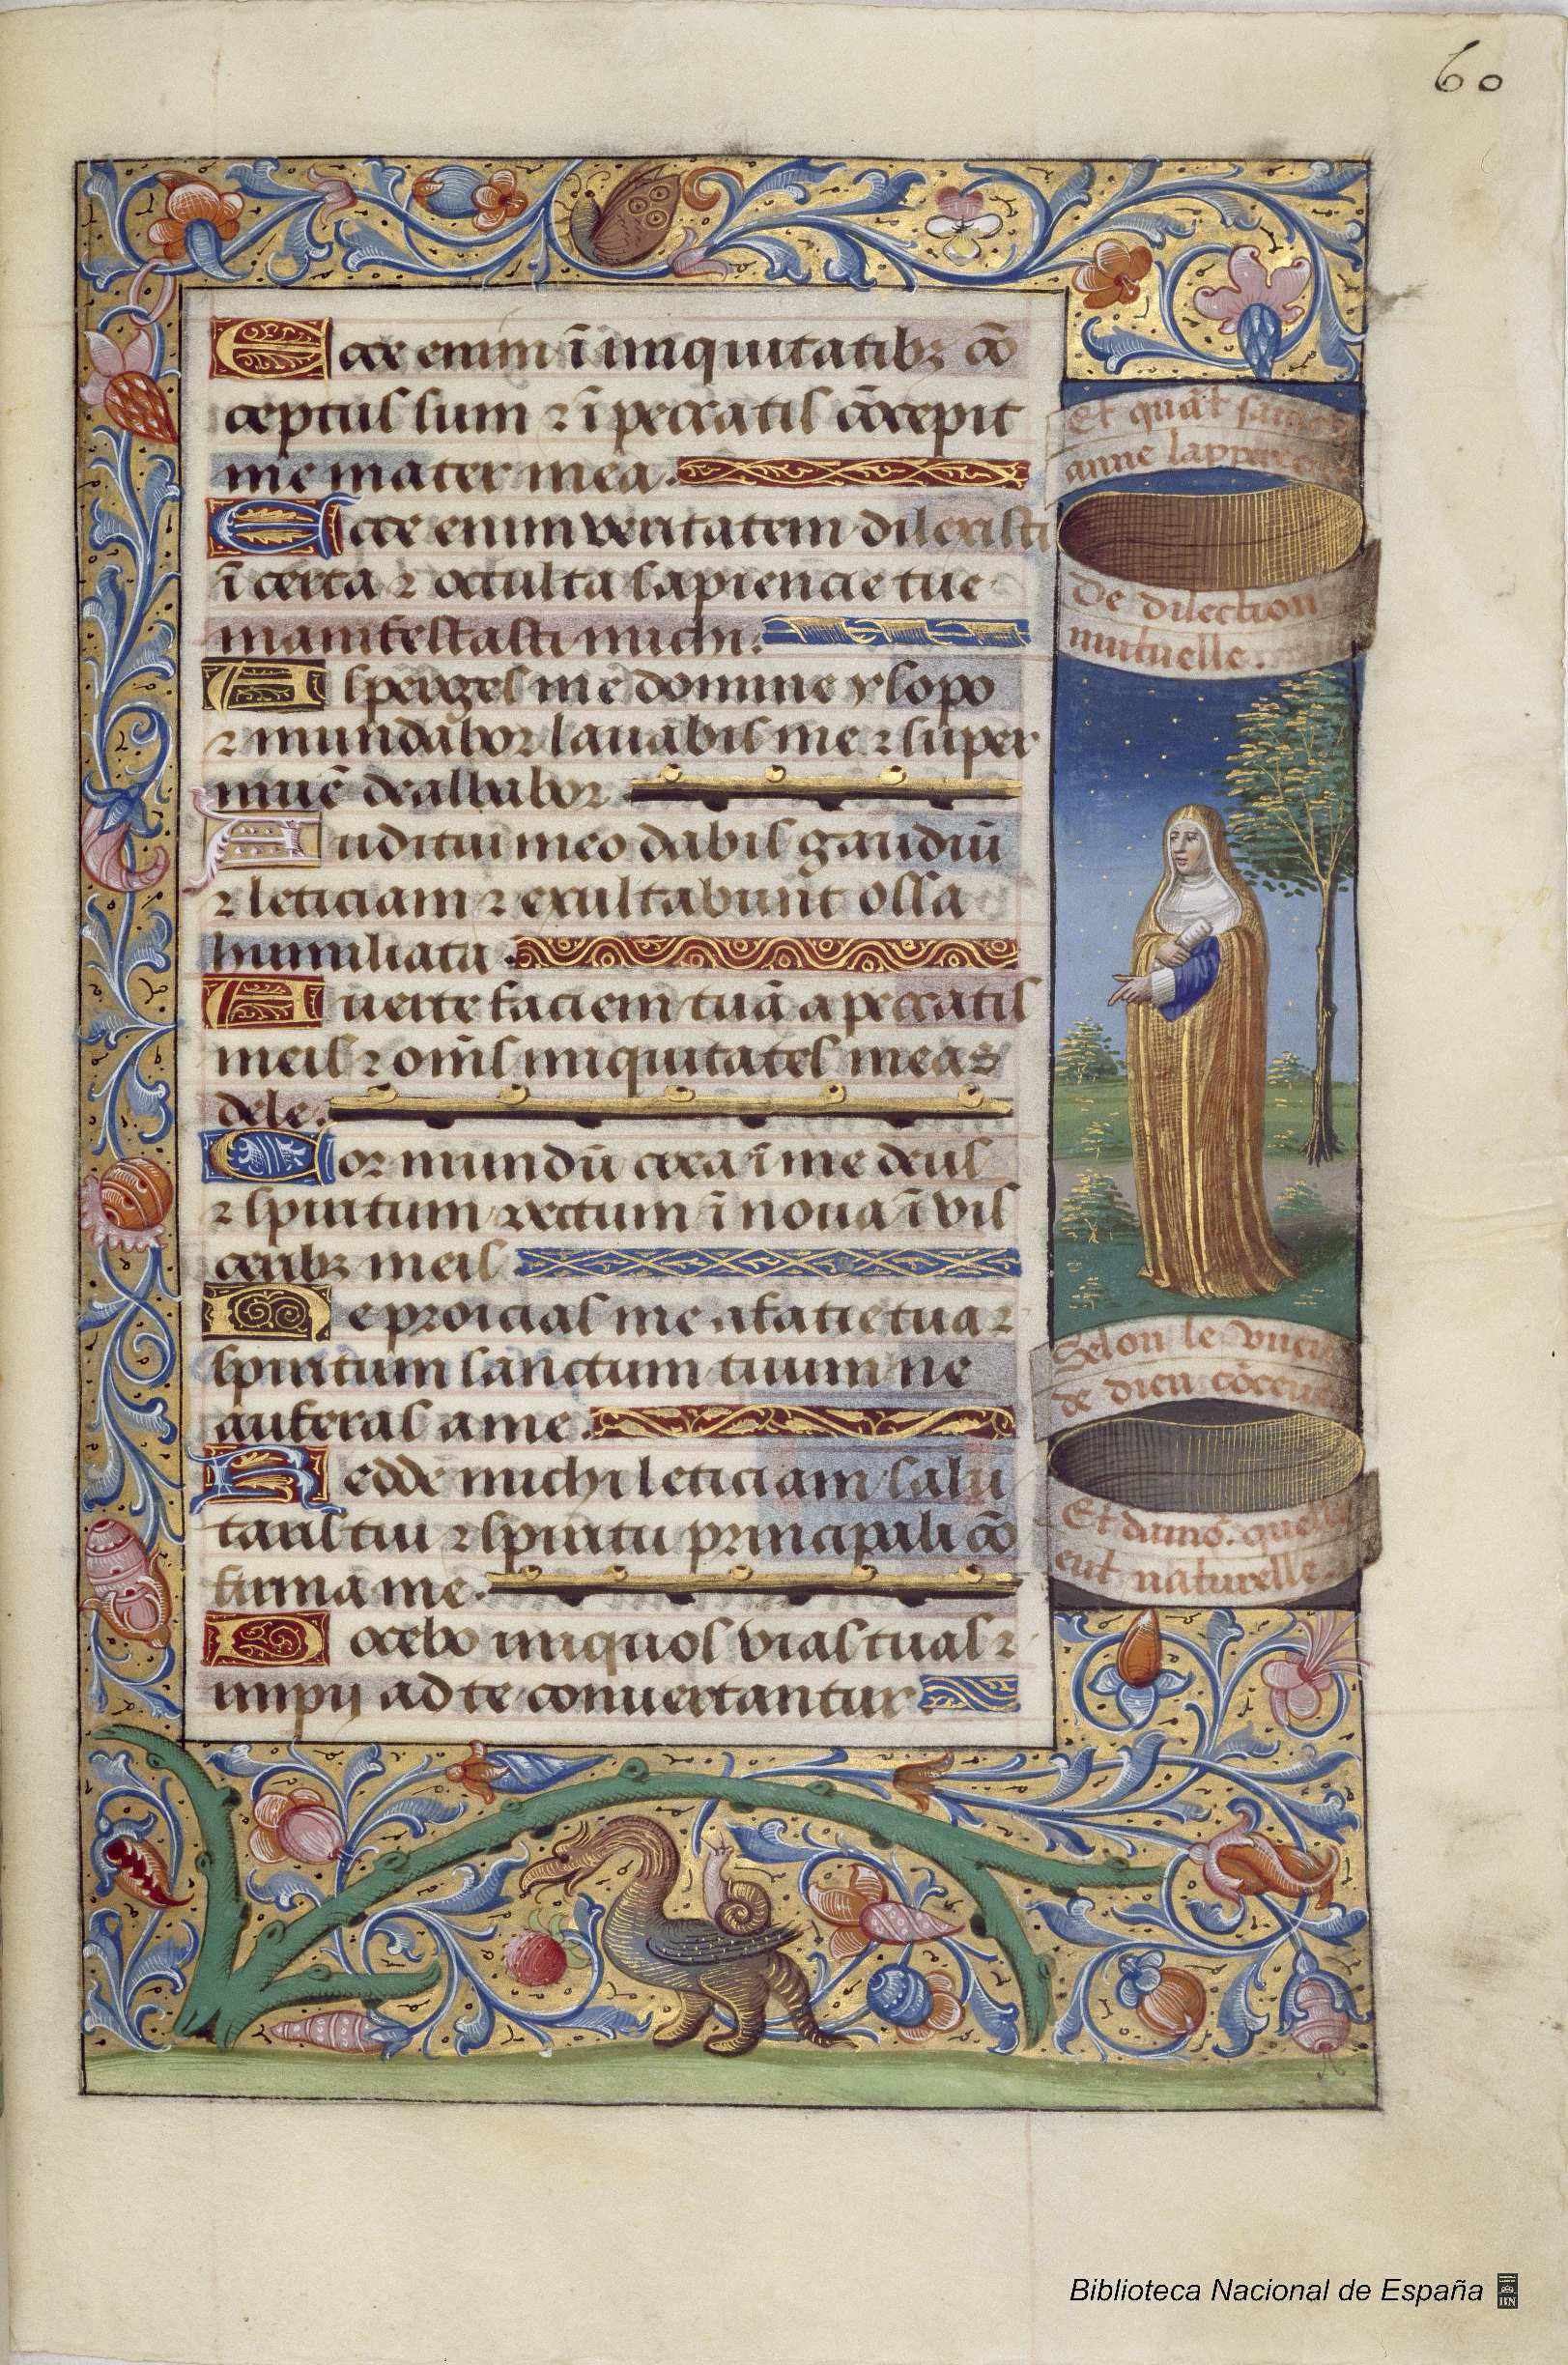 60
Ecce enim ī iniquitatibꝫ cō
ceptus sum ⁊ ī peccatis cōcepit
me mater mea.
Ecce enim veritatem dilexisti
īcerta ⁊ occulta sapiencie tue
manifestasti michi.
Asperges me domine ysopo
⁊ mundabor lauabis me ⁊ super
niuē dealbabor
Auditui meo dabis gaudiū
⁊ leticiam ⁊ exultabunt ossa
humiliata.
Auerte faciem tuā a peccatis
meis ⁊ om̄s iniquitates meas
dele.
Cor mundū crea ī me deus
⁊ spiritum rectum īnoua ī vis
ceribꝫ meis
Ne proicias me a facie tua ⁊
spiritum sanctum tuum ne
auferas a me.
Redde michi leticiam salu
taris tui ⁊ spiritu principali cō
firma me.
Docebo iniquos vias tuas ⁊
impij ad te conuertantur.
Et quāt
anne
De dilection
mutuelle.
Selon le
de dieu
Et
eut naturelle.
Biblioteca Nacional de España